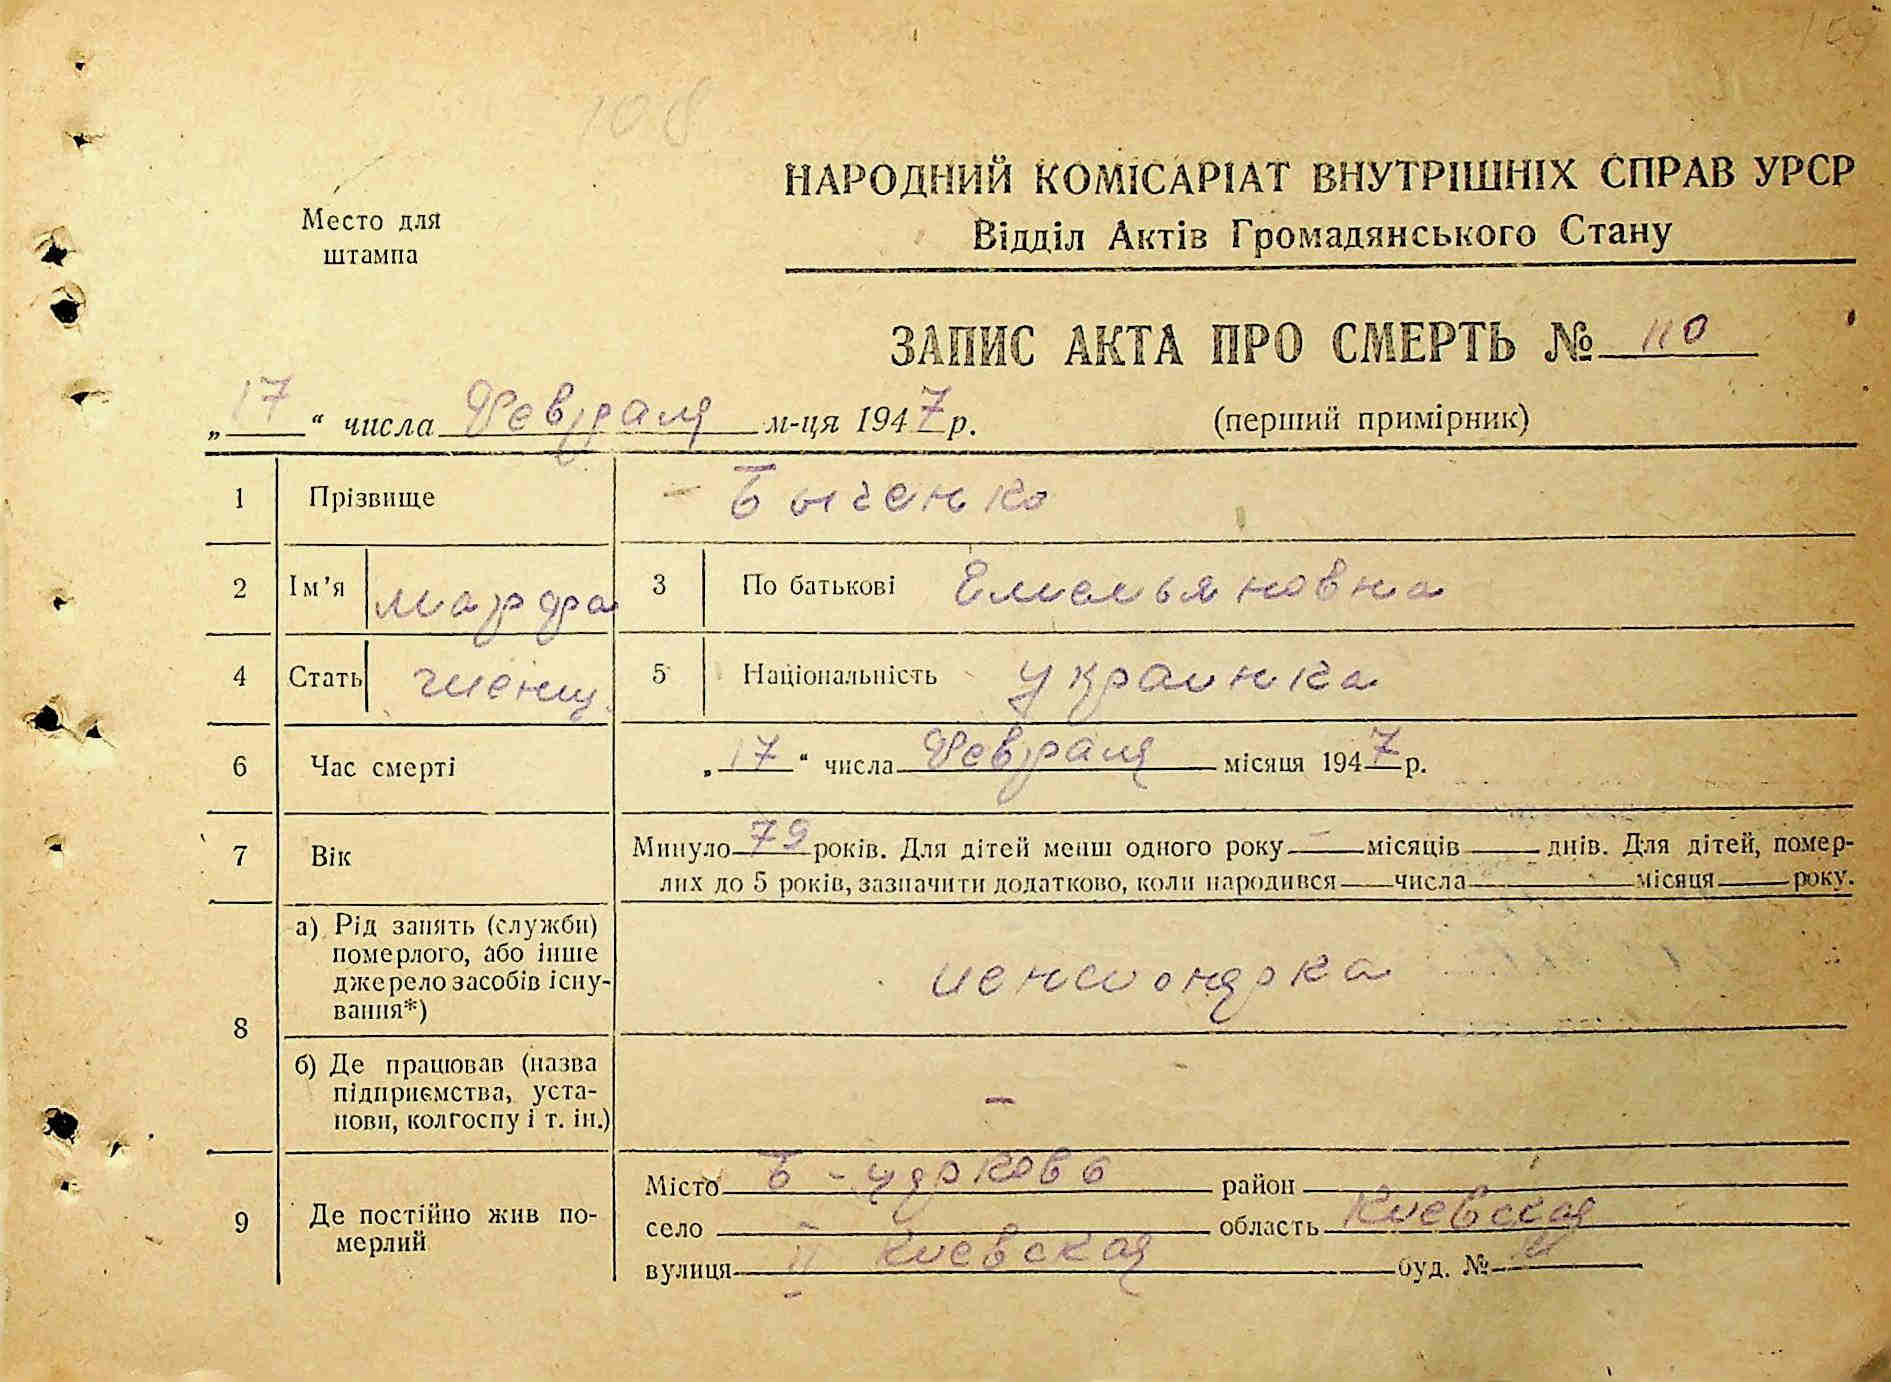 108
НАРОДНИЙ КОМІСАРІАТ ВНУТРІШНІХ СПРАВ УРСР
Место для
штампа
Відділ Актів Громадянського Стану
ЗАПИС АКТА ПРО СМЕРТЬ № 110
„17“ числа Февраля м-ця 1947 р. (перший примірник)
1 Прізвище Быченко
2 Ім'я Марфа 3 По батькові Емельяновна
4 Стать женщ. 5 Національність украинка
6 Час смерті „17“ числа Февраля місяця 1947 р.
7 Вік Минуло 79 років. Для дітей менш одного року — місяців днів. Для дітей, помер-
лих до 5 років, зазначити додатково, коли народився числа місяця року.
8 а) Рід занять (служби)
померлого, або інше
джерело засобів існу-
вання*)
пенсионерка
б) Де працював (назва
підприємства, уста-
нови, колгоспу і т. ін.)
—
9 Де постійно жив по-
мерлий
Місто Б-церковь район
село — область Киевская
вулиця II Киевская буд. №